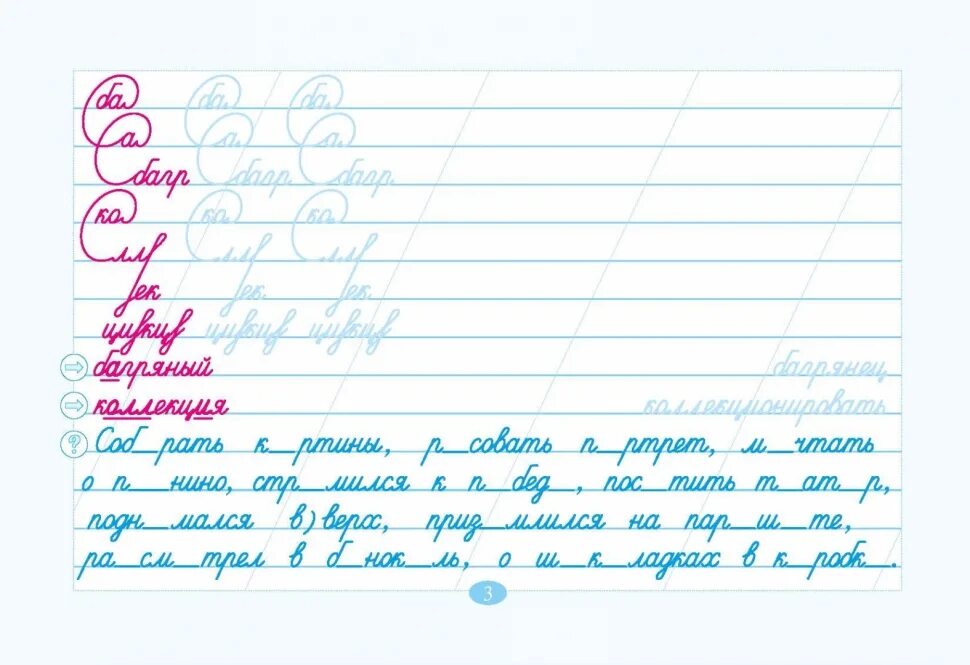 ба ба ба
а а а
багр багр багр
ко ко ко
лл лл лл
ек ек ек
багряный багрянец
коллекция коллекционировать
? Соб_рать к_ртины, р_совать п_ртрет, м_чтать
о п_нино, стр_мился к п_бед_, пос_тить т_ат_р,
подн_мался в)верх, приз_млился на пар_ш_те,
ра_см_трел в б_нок_ль, о ш_к_ладках в к_робк_.
3